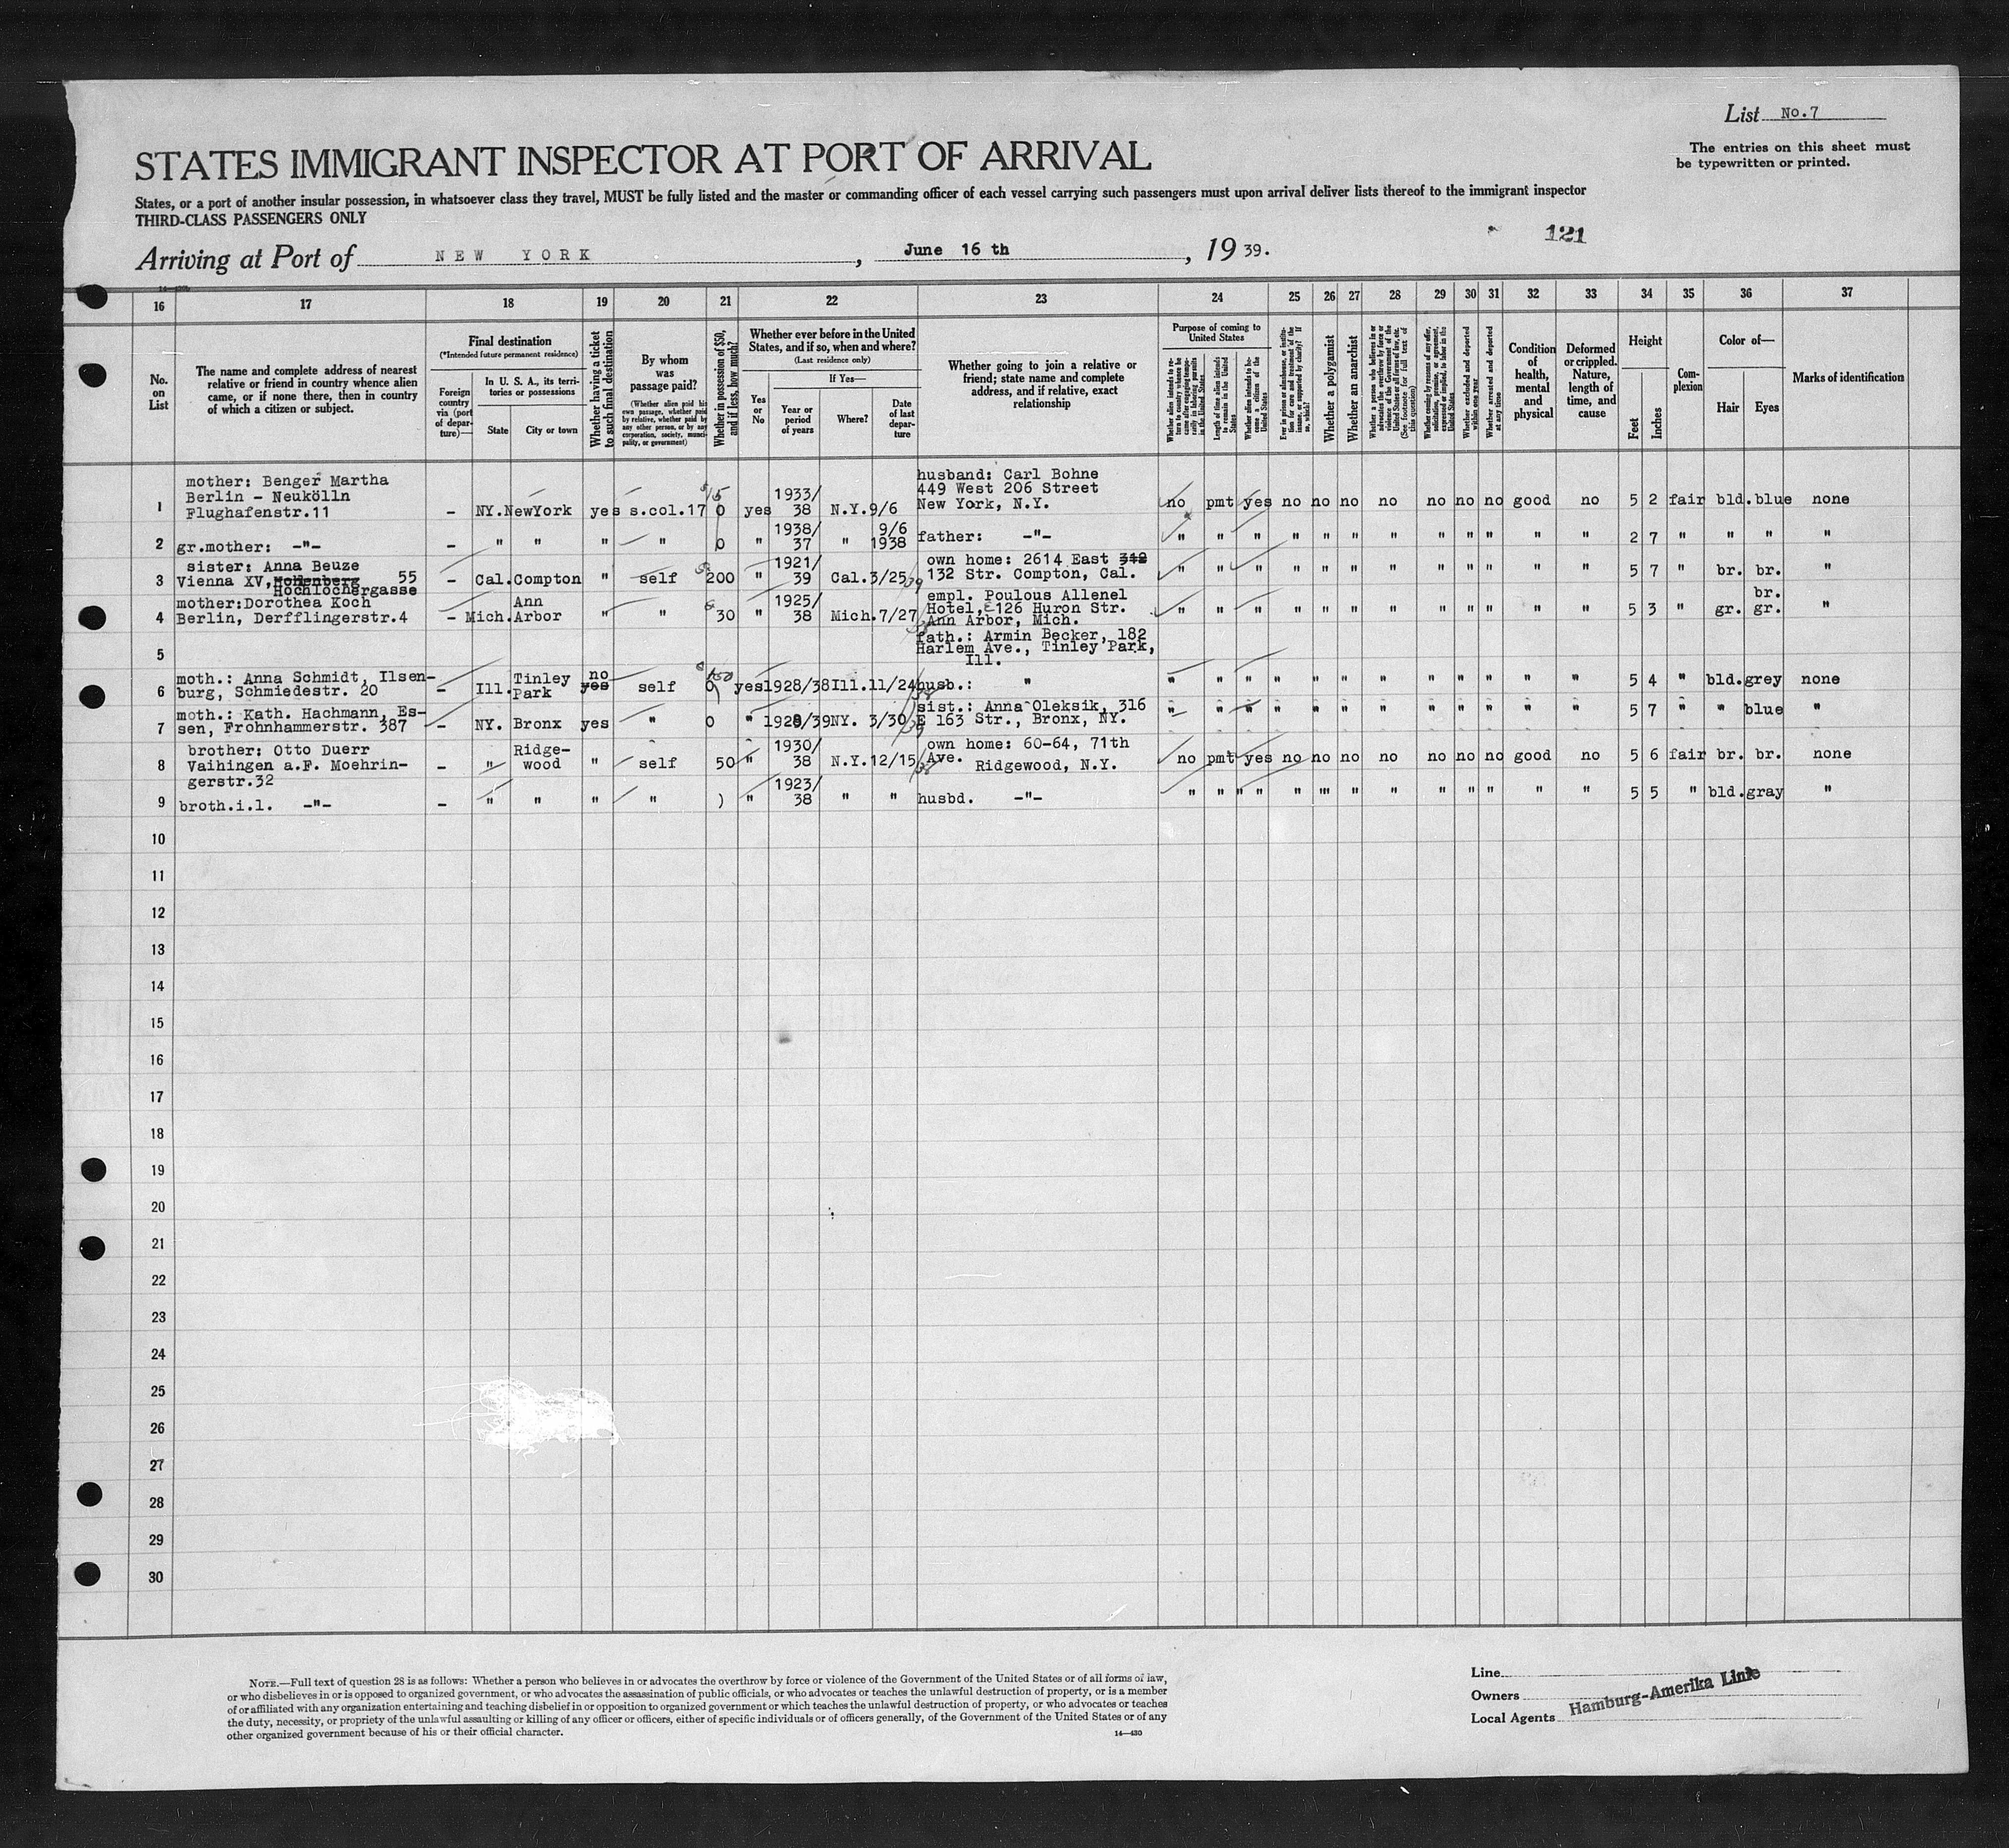 List No.7
The entries on this sheet must
be typewritten or printed.
STATES IMMIGRANT INSPECTOR AT PORT OF ARRIVAL
States, or a port of another insular possession, in whatsoever class they travel, MUST be fully listed and the master or commanding officer of each vessel carrying such passengers must upon arrival deliver lists thereof to the immigrant inspector
THIRD-CLASS PASSENGERS ONLY
121
Arriving at Port of NEW YORK, June 16 th, 19 39.
16 17 18 19 20 21 22 23 24 25 26 27 28 29 30 31 32 33 34 35 36 37
No.
on
List
The name and complete address of nearest
relative or friend in country whence alien
came, or if none there, then in country
of which a citizen or subject.
Final destination
(*Intended future permanent residence)
Foreign
country
via (port
of depar-
ture)—
In U. S. A., its terri-
tories or possessions
State
City or town
Whether having a ticket
to such final destination
By whom
was
passage paid?
(Whether alien paid his
own passage, whether paid
by relative, whether paid by
any other person, or by any
corporation, society, munici-
pality, or government)
Whether in possession of $50,
and if less, how much?
Whether ever before in the United
States, and if so, when and where?
(Last residence only)
Yes
or
No
If Yes—
Year or
period
of years
Where?
Date
of last
depar-
ture
Whether going to join a relative or
friend; state name and complete
address, and if relative, exact
relationship
Purpose of coming to
United States
Whether alien intends to re-
turn to country whence he
came after engaging tempo-
rarily in laboring pursuits
in the United States
Length of time alien intends
to remain in the United
States
Whether alien intends to be-
come a citizen of the
United States
Ever in prison or almshouse, or institu-
tion for care and treatment of the
insane, or supported by charity? If
so, which?
Whether a polygamist
Whether an anarchist
Whether a person who believes in or
advocates the overthrow by force or
violence of the Government of the
United States or all forms of law, etc.
(See footnote for full text of
this question)
Whether coming by reason of any offer,
solicitation, promise, or agreement,
expressed or implied, to labor in the
United States
Whether excluded and deported
within one year
Whether arrested and deported
at any time
Condition
of
health,
mental
and
physical
Deformed
or crippled.
Nature,
length of
time, and
cause
Height
Feet
Inches
Com-
plexion
Color of—
Hair
Eyes
Marks of identification
1 mother: Benger Martha
Berlin - Neukölln
Flughafenstr.11
- NY. NewYork yes s.col.17 0 yes 1933/
38 N.Y. 9/6
husband: Carl Bohne
449 West 206 Street
New York, N.Y.
no pmt yes no no no no no no no good no 5 2 fair bld. blue none
2 gr.mother: -"-
- " " " " 0 " 1938/
37 " 9/6
1938
father: -"-
" " " " " " " " " " " " 2 7 " " " "
3 sister: Anna Beuze
Vienna XV, 55
Hochlochergasse
- Cal. Compton " self 200 " 1921/
39 Cal. 3/25/39
own home: 2614 East 312
132 Str. Compton, Cal.
" " " " " " " " " " " " 5 7 " br. br. "
4 mother:Dorothea Koch
Berlin, Derfflingerstr.4
- Mich. Ann
Arbor " " 30 " 1925/
38 Mich. 7/27
empl. Poulous Allenel
Hotel, 126 Huron Str.
Ann Arbor, Mich.
" " " " " " " " " " " " 5 3 " gr. br.
gr. "
5 fath.: Armin Becker, 182
Harlem Ave., Tinley Park,
Ill.
6 moth.: Anna Schmidt, Ilsen-
burg, Schmiedestr. 20
- Ill. Tinley
Park no
yes self 0 150 yes 1928/38 Ill. 11/24
husb.: "
" " " " " " " " " " " " 5 4 " bld. grey none
7 moth.: Kath. Hachmann, Es-
sen, Frohnhammerstr. 387
- NY. Bronx yes " 0 " 1928/39 NY. 3/30/39
sist.: Anna Oleksik, 316
E 163 Str., Bronx, NY.
" " " " " " " " " " " " 5 7 " " blue "
8 brother: Otto Duerr
Vaihingen a.F. Moehrin-
gerstr.32
- " Ridge-
wood " self 50 " 1930/
38 N.Y. 12/15/38
own home: 60-64, 71th
Ave. Ridgewood, N.Y.
no pmt yes no no no no no no no good no 5 6 fair br. br. none
9 broth.i.l. -"-
- " " " " ) " 1923/
38 " "
husbd. -"-
" " " " " "" " " " " " " " 5 5 " bld. gray "
10
11
12
13
14
15
16
17
18
19
20
21
22
23
24
25
26
27
28
29
30
NOTE.—Full text of question 28 is as follows: Whether a person who believes in or advocates the overthrow by force or violence of the Government of the United States or of all forms of law,
or who disbelieves in or is opposed to organized government, or who advocates the assassination of public officials, or who advocates or teaches the unlawful destruction of property, or is a member
of or affiliated with any organization entertaining and teaching disbelief in or opposition to organized government or which teaches the unlawful destruction of property, or who advocates or teaches
the duty, necessity, or propriety of the unlawful assaulting or killing of any officer or officers, either of specific individuals or of officers generally, of the Government of the United States or of any
other organized government because of his or their official character.
14—430
Line
Owners
Local Agents
Hamburg-Amerika Linie